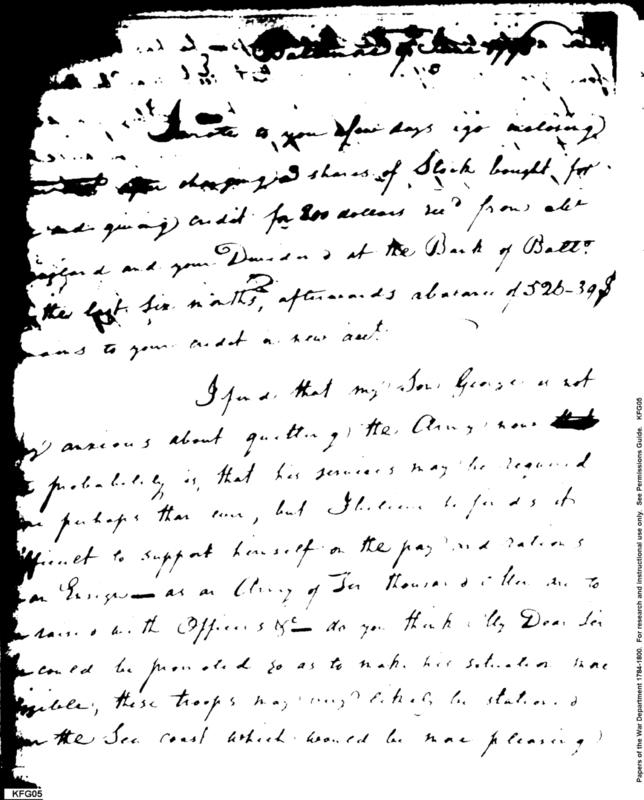 Baltimore
I wrote to you a few days ago inclosing
charging shares of Stock bought for
and giving credit for 200 dollars rec'd from
and your Dividend at the Bank of Balto.
the last six months, afterwards a balance of 526-39$
to your credit in new acct.
I find that my Son George is not
anxious about quitting the Army now
probability is, that his services may be required
perhaps than ever, but I believe he finds it
difficult to support himself on the pay and rations
an Ensign — as an Army of Ten thousand Men are to
raised with Officers &c — do you think My Dear Sir
could be promoted so as to make his situation more
eligible, these troops may very likely be stationed
the Sea coast which would be more pleasing
Papers of the War Department 1784-1800. For research and instructional use only. See Permissions Guide. KFG05
KFG05